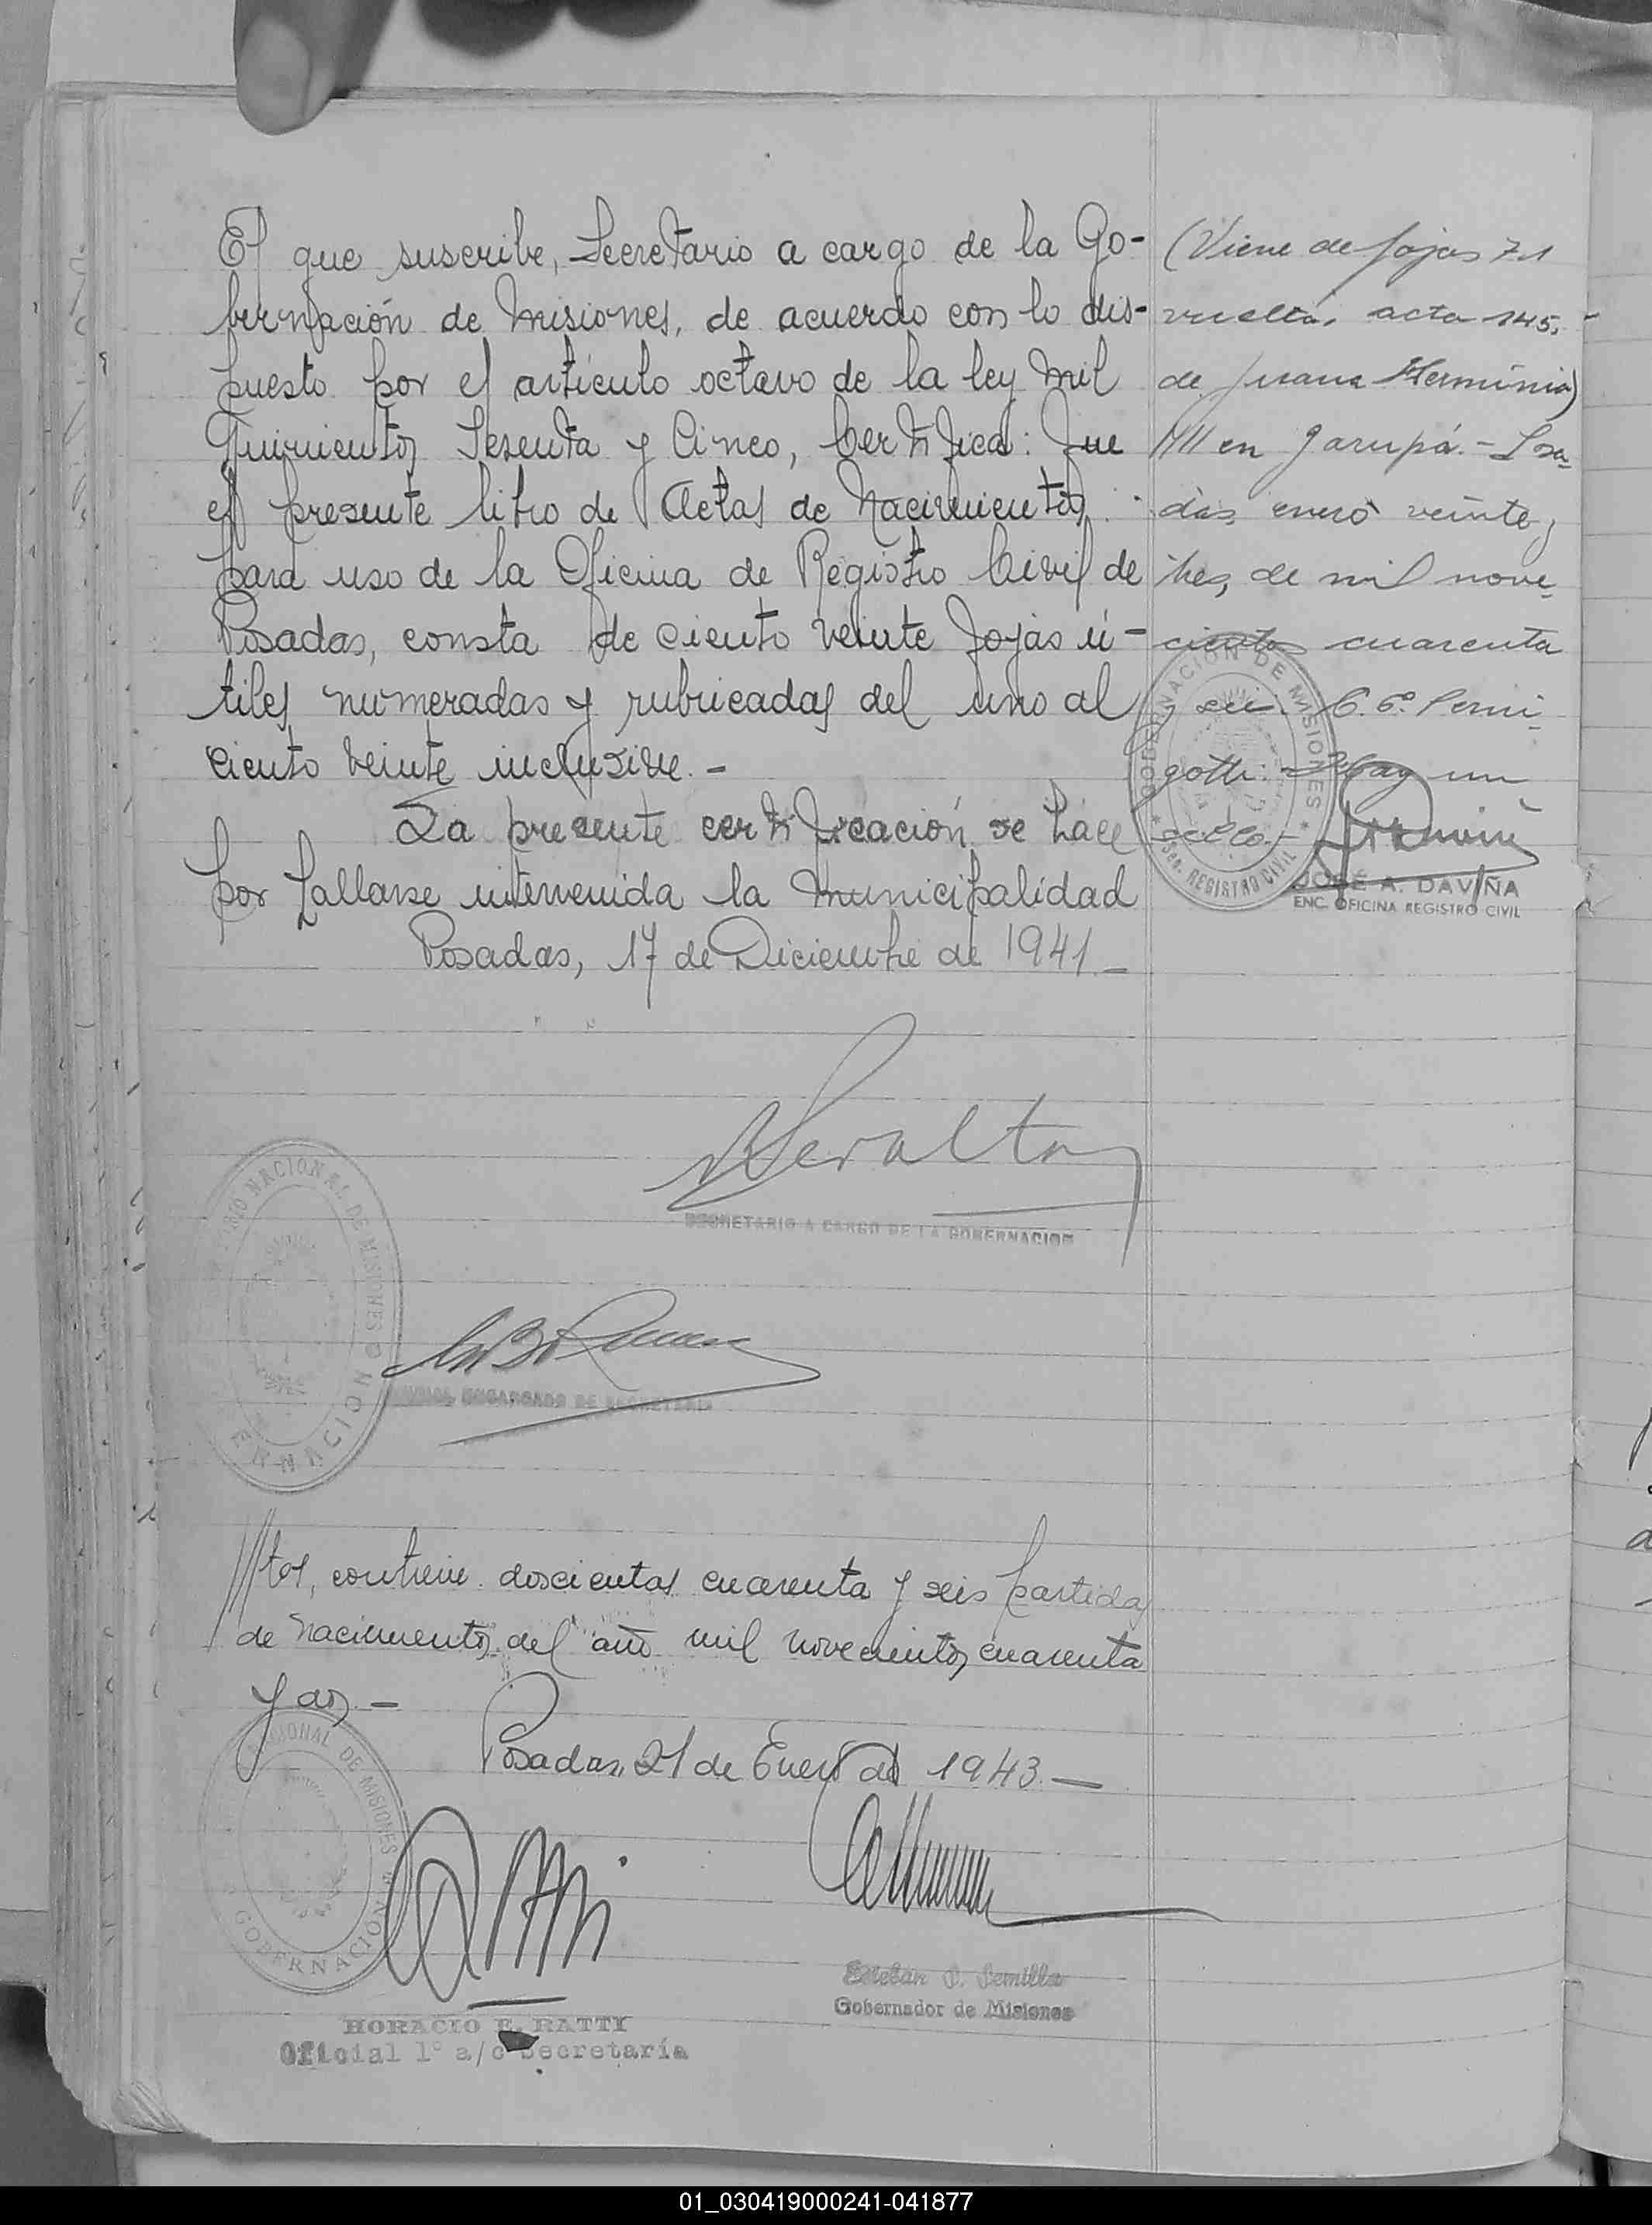 El que suscribe, Secretario a cargo de la Go-
bernación de Misiones, de acuerdo con lo dis-
puesto por el artículo octavo de la ley Mil
Quinientos Sesenta y Cinco, Certifica: Que
el presente libro de Actas de Nacimientos
para uso de la Oficina de Registro Civil de
Posadas, consta de ciento veinte fojas ú-
tiles numeradas y rubricadas del uno al
ciento veinte inclusive.-
La presente certificación se hace
por hallarse intervenida la Municipalidad
Posadas, 17 de Diciembre de 1941.-
(Viene de fojas 71
vuelta, acta 145,
de Juana Herminia)
//// en Garupá.- Posa-
das, enero veinte y
tres, de mil nove-
cientos cuarenta
C. C. Perni-
gotti. Hay un
sello.-
GOBERNACION DE MISIONES
REGISTRO CIVIL
JOSÉ A. DAVIÑA
ENC. OFICINA REGISTRO CIVIL
Peralta
SECRETARIO A CARGO DE LA GOBERNACION
NACIONAL DE MISIONES
ENCARGADO DE SECRETARIA
///tos, contiene doscientas cuarenta y seis partidas
de nacimientos del año mil novecientos cuarenta
y dos.-
Posadas, 21 de Enero de 1943.-
NACIONAL DE MISIONES
GOBERNACION
Ratti
HORACIO E. RATTI
Oficial 1º a/c Secretaría
Esteban C. Semilla
Gobernador de Misiones
01_030419000241-041877